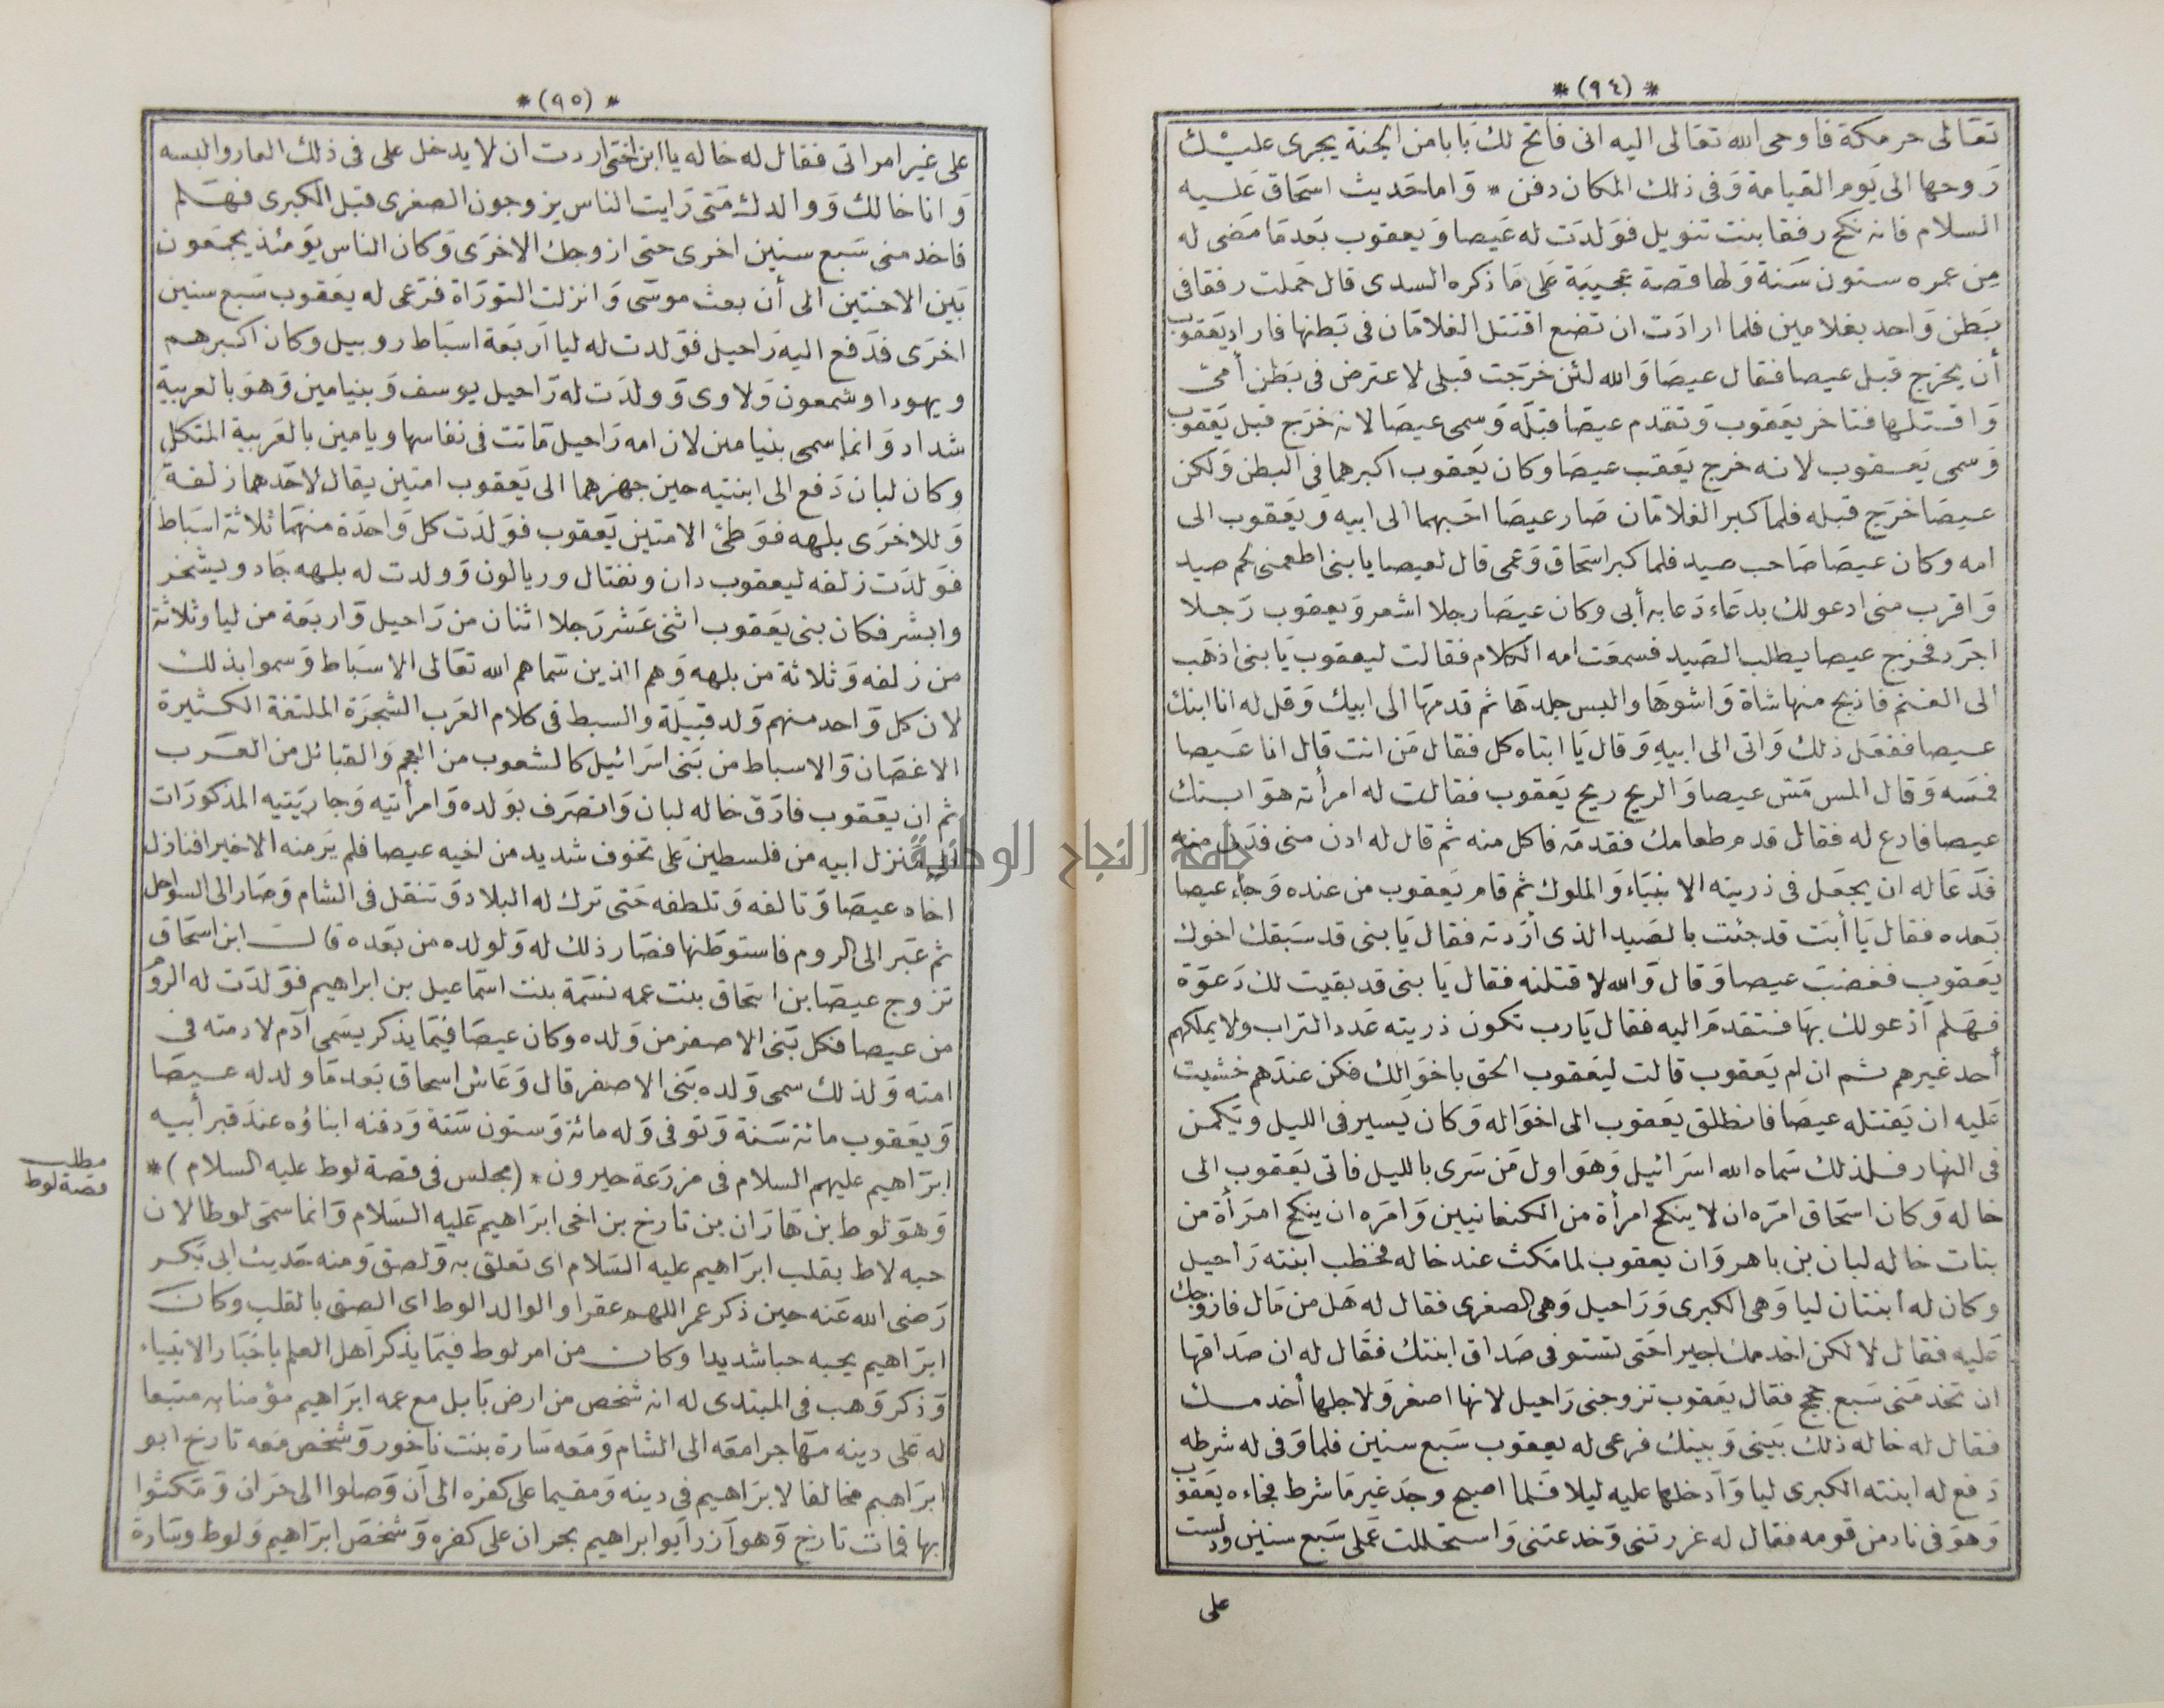 * (٩٤) *
تعالى حر مكة فاوحى الله تعالى اليه انى فاتح لك بابا من الجنة يجرى عليك
روحها الى يوم القيامة وفى ذلك المكان دفن * واما حديث اسحاق عليه
السلام فانه نكح رفقا بنت تنويل فولدت له عيصا ويعقوب بعدما مضى له
من عمره ستون سنة ولها قصة عجيبة على ما ذكره السدى قال حملت رفقا فى
بطن واحد بغلامين فلما ارادت ان تضع اقتتل الغلامان فى بطنها فاراد يعقوب
أن يخرج قبل عيصا فقال عيصا والله لئن خرجت قبلى لاعترض فى بطن أمى
واقتلها فتاخر يعقوب وتقدم عيصا قبله وسمى عيصا لانه خرج قبل يعقوب
وسمى يعقوب لانه خرج يعقب عيصا وكان يعقوب اكبرهما فى البطن ولكن
عيصا خرج قبله فلما كبر الغلامان صار عيصا احبهما الى ابيه ويعقوب الى
امه وكان عيصا صاحب صيد فلما كبر اسحاق وعمى قال لعيصا يا بنى اطعمنى لحم صيد
واقرب منى ادعو لك بدعاء دعا به أبى وكان عيصا رجلا اشعر ويعقوب رجلا
اجرد فخرج عيصا يطلب الصيد فسمعت امه الكلام فقالت ليعقوب يا بنى اذهب
الى الغنم فاذبح منها شاة واشوها والبس جلدها ثم قدمها الى ابيك وقل له انا ابنك
عيصا ففعل ذلك واتى الى ابيه وقال يا ابتاه كل فقال من انت قال انا عيصا
فمسه وقال المس مس عيصا والريح ريح يعقوب فقالت له امرأته هو ابنك
عيصا فادع له فقال قدم طعامك فقدمه فاكل منه ثم قال له ادن منى فدنى منه
فدعا له ان يجعل فى ذريته الانبياء والملوك ثم قام يعقوب من عنده وجاء عيصا
بعده فقال يا أبت قد جئت بالصيد الذى أردته فقال يا بنى قد سبقك اخوك
يعقوب فغضب عيصا وقال والله لاقتلنه فقال يا بنى قد بقيت لك دعوة
فهلم أدعو لك بها فتقدم اليه فقال يارب تكون ذريته عدد التراب ولا يملكهم
أحد غيرهم ثم ان ام يعقوب قالت ليعقوب الحق باخوالك فكن عندهم خشيت
عليه ان يقتله عيصا فانطلق يعقوب الى اخواله وكان يسير فى الليل ويكمن
فى النهار فلذلك سماه الله اسرائيل وهو اول من سرى بالليل فاتى يعقوب الى
خاله وكان اسحاق امره ان لا ينكح امرأة من الكنعانيين وامره ان ينكح امرأة من
بنات خاله لبان بن باهر وان يعقوب لما مكث عند خاله فخطب ابنته راحيل
وكان له ابنتان ليا وهى الكبرى وراحيل وهى الصغرى فقال له هل من مال فازوجك
عليه فقال لا لكن اخدمك اجيرا حتى تستوفى صداق ابنتك فقال له ان صداقها
ان تخدمنى سبع حجج فقال يعقوب تزوجنى راحيل لانها اصغر ولاجلها أخدمك
فقال له خاله ذلك بينى وبينك فرعى له يعقوب سبع سنين فلما وفى له شرطه
دفع له ابنته الكبرى ليا وأدخلها عليه ليلا فلما اصبح وجد غير ما شرط فجاءه يعقوب
وهو فى ناد من قومه فقال له غررتنى وخدعتنى واستحللت عملى سبع سنين ودلست
على
* (٩٥) *
على غير امراتى فقال له خاله يا ابن اختى اردت ان لا يدخل على فى ذلك العار والبسه
وانا خالك ووالدك متى رايت الناس يزوجون الصغرى قبل الكبرى فهلم
فاخدمنى سبع سنين اخرى حتى ازوجك الاخرى وكان الناس يومئذ يجمعون
بين الاختين الى أن بعث موسى وانزلت التوراة فرعى له يعقوب سبع سنين
اخرى فدفع اليه راحيل فولدت له ليا اربعة اسباط روبيل وكان اكبرهم
ويهودا وشمعون ولاوى وولدت له راحيل يوسف وبنيامين وهو بالعربية
شداد وانما سمى بنيامين لان امه راحيل ماتت فى نفاسها ويامين بالعربية المتكل
وكان لبان دفع الى ابنتيه حين جهزهما الى يعقوب امتين يقال لاحدهما زلفة
وللاخرى بلهه فوطئ الامتين يعقوب فولدت كل واحدة منهما ثلاثة اسباط
فولدت زلفه ليعقوب دان ونفتال وريالون وولدت له بلهه جاد ويشخر
وابشر فكان بنى يعقوب اثنى عشر رجلا اثنان من راحيل واربعة من ليا وثلاثة
من زلفه وثلاثة من بلهه وهم الذين سماهم الله تعالى الاسباط وسموا بذلك
لان كل واحد منهم ولد قبيلة والسبط فى كلام العرب الشجرة الملتفة الكثيرة
الاغصان والاسباط من بنى اسرائيل كالشعوب من العجم والقبائل من العرب
ثم ان يعقوب فارق خاله لبان وانصرف بولده وامرأتيه وجاريتيه المذكورات
الى منزل ابيه من فلسطين على تخوف شديد من اخيه عيصا فلم ير منه الا خيرا فنازل
اخاه عيصا وتالفه وتلطفه حتى ترك له البلاد وتنقل فى الشام وصار الى السواحل
ثم عبر الى الروم فاستوطنها فصار ذلك له ولولده من بعده قال ابن اسحاق
تزوج عيصا بن اسحاق بنت عمه نسمة بنت اسماعيل بن ابراهيم فولدت له الروم
من عيصا فكل بنى الاصفر من ولده وكان عيصا فيما يذكر يسمى آدم لادمته فى
امته ولذلك سمى ولده بنى الاصفر قال وعاش اسحاق بعدما ولد له عيصا
ويعقوب مائة سنة وتوفى وله مائة وستون سنة ودفنه ابناؤه عند قبر أبيه
ابراهيم عليهم السلام فى مزرعة حيرون * (مجلس فى قصة لوط عليه السلام) *
مطلب
قصة لوط
وهو لوط بن هاران بن تارخ بن اخى ابراهيم عليه السلام وانما سمى لوطا لان
حبه لاط بقلب ابراهيم عليه السلام اى تعلق به ولصق ومنه حديث ابى بكر
رضى الله عنه حين ذكر عمر اللهم عقرا والوالد الوط اى الصق بالقلب وكان
ابراهيم يحبه حبا شديدا وكان من امر لوط فيما يذكر اهل العلم باخبار الانبياء
وذكر وهب فى المبتدى له انه شخص من ارض بابل مع عمه ابراهيم مؤمنا به متبعا
له على دينه مهاجرا معه الى الشام ومعه سارة بنت ناخور وشخص معه تارخ ابو
ابراهيم مخالفا لابراهيم فى دينه ومقيما على كفره الى أن وصلوا الى حران ومكثوا
بها فمات تارخ وهو آزر أبو ابراهيم بحران على كفره وشخص ابراهيم ولوط وسارة
جامعة النجاح الوطنية